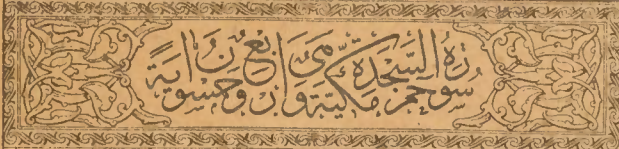 سورة حم السجدة مكية وهى اربع وخمسون اية